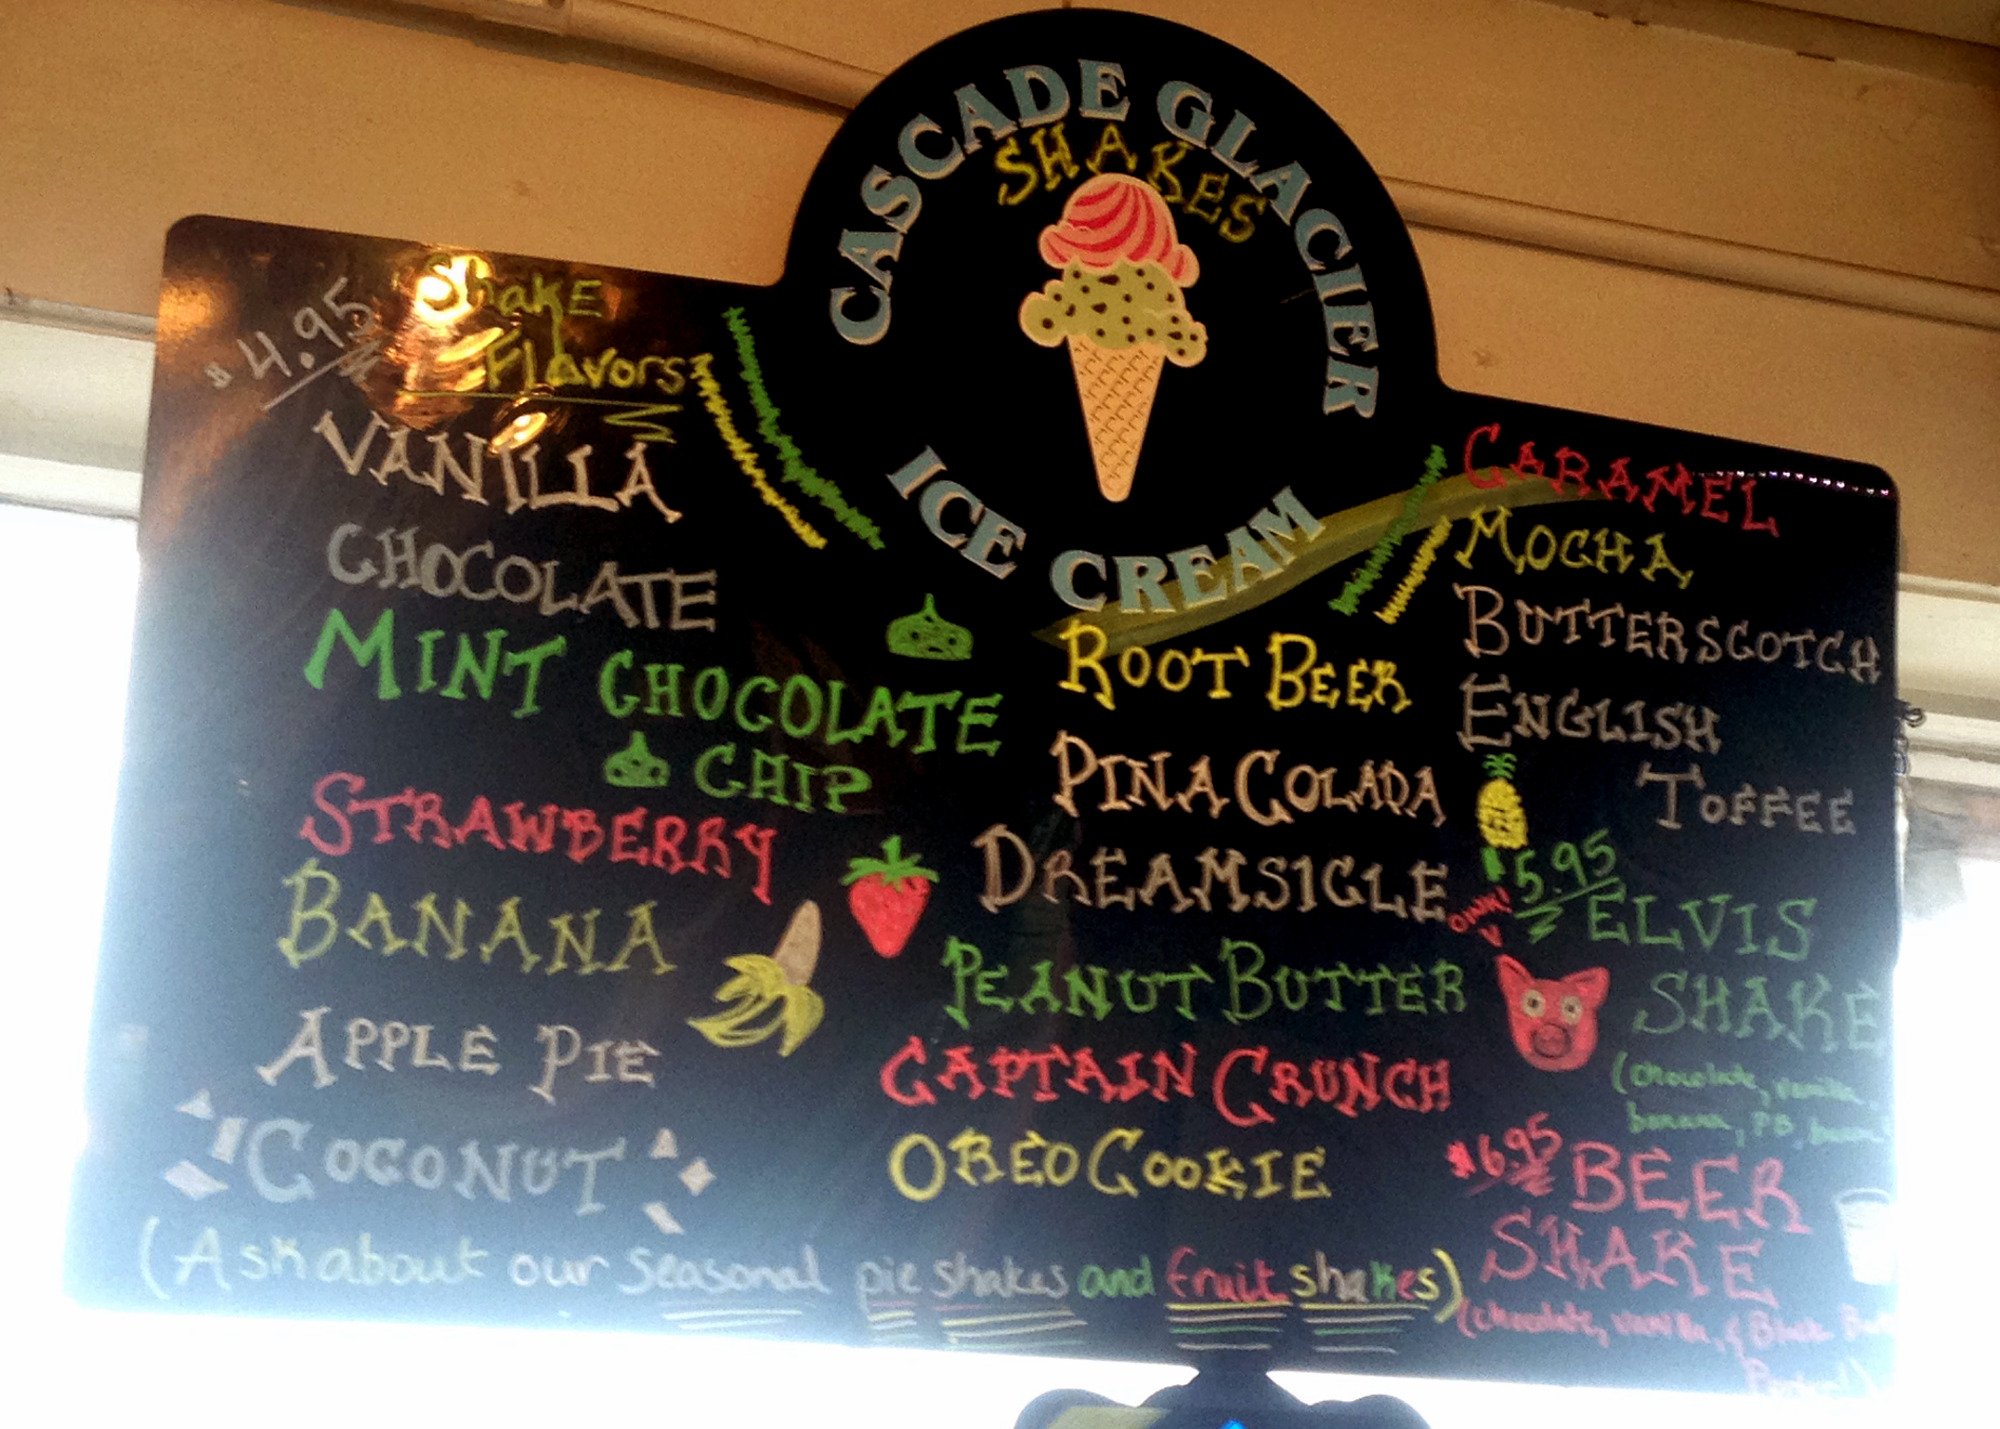 CASCADE GLACIER
SHAKES
ICE CREAM
$4.95
Shake
Flavors
VANILLA
CHOCOLATE
MINT CHOCOLATE
CHIP
STRAWBERRY
BANANA
APPLE PIE
COCONUT
ROOT BEER
PINA COLADA
DREAMSICLE
PEANUT BUTTER
CAPTAIN CRUNCH
OREO COOKIE
CARAMEL
MOCHA
BUTTERSCOTCH
ENGLISH
TOFFEE
$5.95
OINK!
ELVIS
SHAKE
(chocolate, vanilla,
banana, PB,
$6.95
BEER
SHAKE
(chocolate, vanilla, & Black
(Ask about our seasonal pie shakes and fruit shakes)